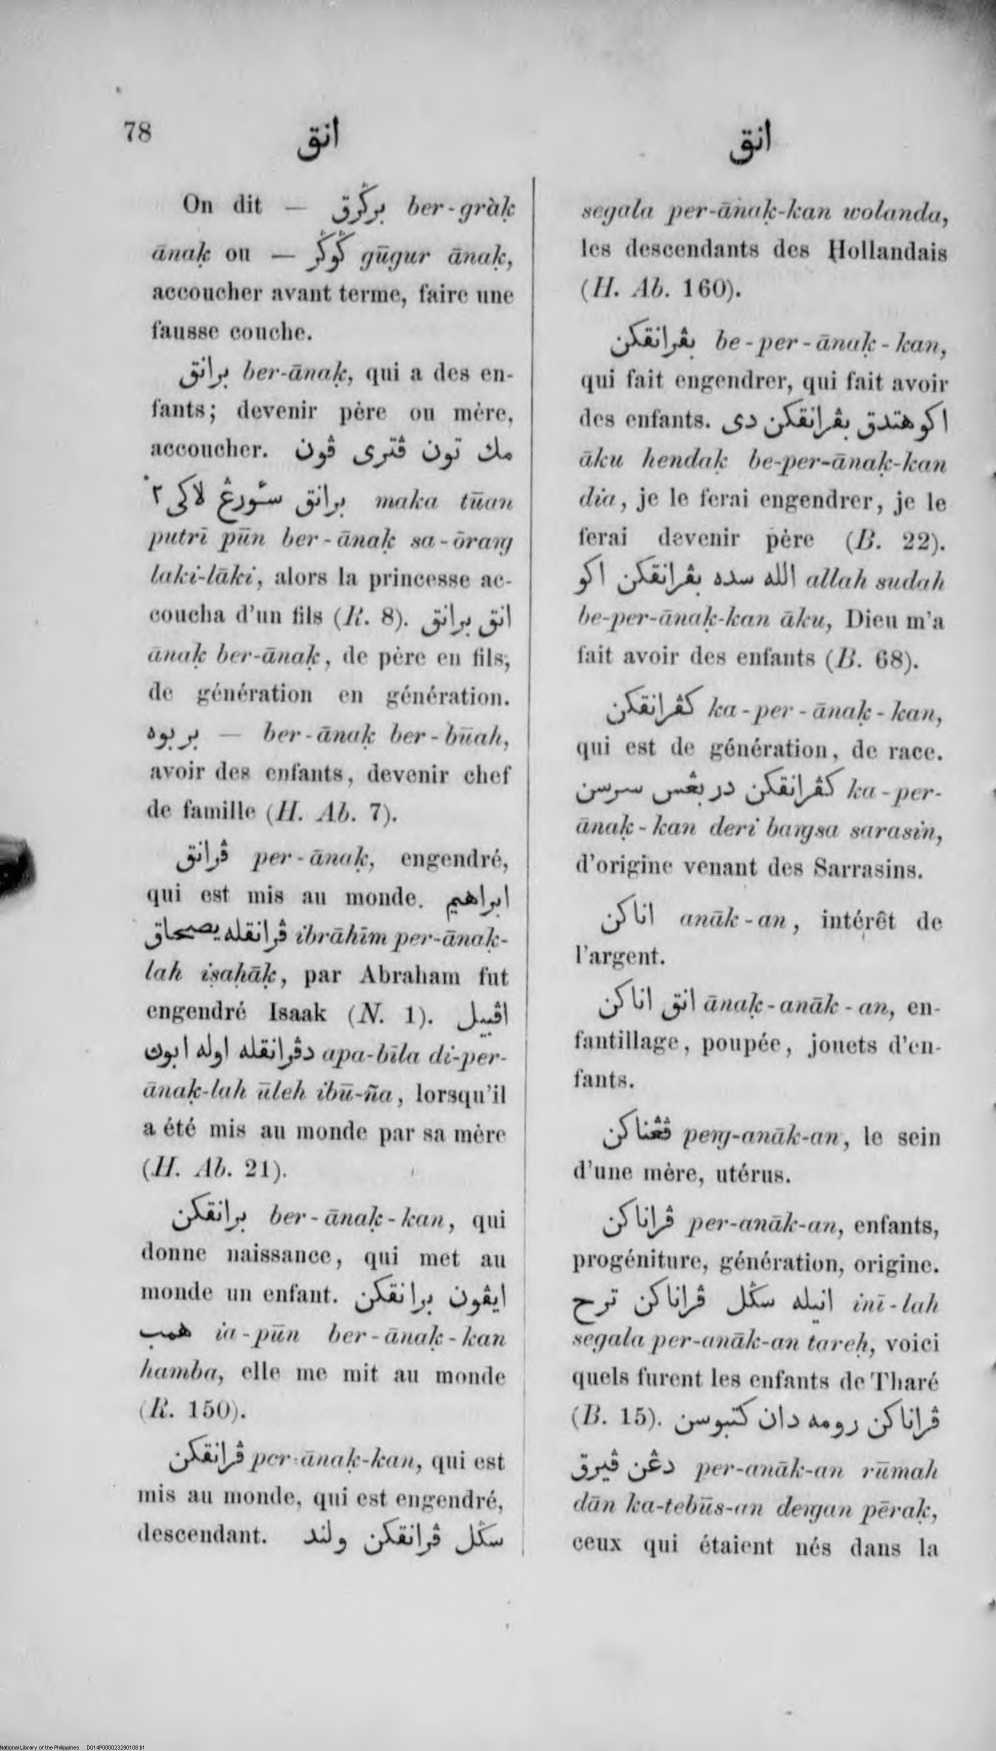 78
انق
انق
On dit — برݢرق ber-gràk
ānaḳ ou — ݢوݢر gūgur ānaḳ,
accoucher avant terme, faire une
fausse couche.
برانق ber-ānaḳ, qui a des en-
fants; devenir père ou mère,
accoucher. مك تون ڤتری ڤون
برانق سٔورڠ لاکی٢ maka tūan
putrī pūn ber-ānaḳ sa-ōraŋg
laki-lāki, alors la princesse ac-
coucha d'un fils (R. 8). انق برانق
ānaḳ ber-ānaḳ, de père en fils,
de génération en génération.
بر بوه — ber-ānaḳ ber-būah,
avoir des enfants, devenir chef
de famille (H. Ab. 7).
ڤرانق per-ānaḳ, engendré,
qui est mis au monde. ابراهيم
ڤرانقله يصحاق ibrāhīm per-ānaḳ-
lah iṣaḥāḳ, par Abraham fut
engendré Isaak (N. 1). اڤبيل
دڤرانقله اوله ابوڽ apa-bīla di-per-
ānaḳ-lah ūleh ibū-ña, lorsqu'il
a été mis au monde par sa mère
(H. Ab. 21).
برانقکن ber-ānaḳ-kan, qui
donne naissance, qui met au
monde un enfant. ايڤون برانقکن
همب ia-pūn ber-ānaḳ-kan
hamba, elle me mit au monde
(R. 150).
ڤرانقکن per-ānaḳ-kan, qui est
mis au monde, qui est engendré,
descendant. سݢل ڤرانقکن ولند
segala per-ānaḳ-kan wolanda,
les descendants des Hollandais
(H. Ab. 160).
بڤرانقکن be-per-ānaḳ-kan,
qui fait engendrer, qui fait avoir
des enfants. اکو هندق بڤرانقکن دی
āku hendaḳ be-per-ānaḳ-kan
dia, je le ferai engendrer, je le
ferai devenir père (B. 22).
الله سده بڤرانقکن اکو allah sudah
be-per-ānaḳ-kan āku, Dieu m'a
fait avoir des enfants (B. 68).
کڤرانقکن ka-per-ānaḳ-kan,
qui est de génération, de race.
کڤرانقکن در بڠس سرسن ka-per-
ānaḳ-kan deri baŋgsa sarasīn,
d'origine venant des Sarrasins.
اناکن anāk-an, intérêt de
l'argent.
انق اناکن ānaḳ-anāk-an, en-
fantillage, poupée, jouets d'en-
fants.
ڤڠناکن peŋg-anāk-an, le sein
d'une mère, utérus.
ڤراناکن per-anāk-an, enfants,
progéniture, génération, origine.
انيله سݢل ڤراناکن ترح inī-lah
segala per-anāk-an tareḥ, voici
quels furent les enfants de Tharé
(B. 15). ڤراناکن رومه دان کتبوسن
دڠن ڤيرق per-anāk-an rūmah
dān ka-tebūs-an deŋgan pēraḳ,
ceux qui étaient nés dans la
National Library of the Philippines